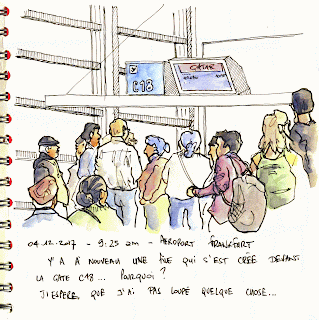 GATE
C18
04.12.2017 - 9:25 am - AEROPORT FRANKFORT
Y A À NOUVEAU UNE FILE QUI S'EST CRÉÉ DEVANT
LA GATE C18... POURQUOI ?
J'ESPÈRE QUE J'AI PAS LOUPÉ QUELQUE CHOSE...